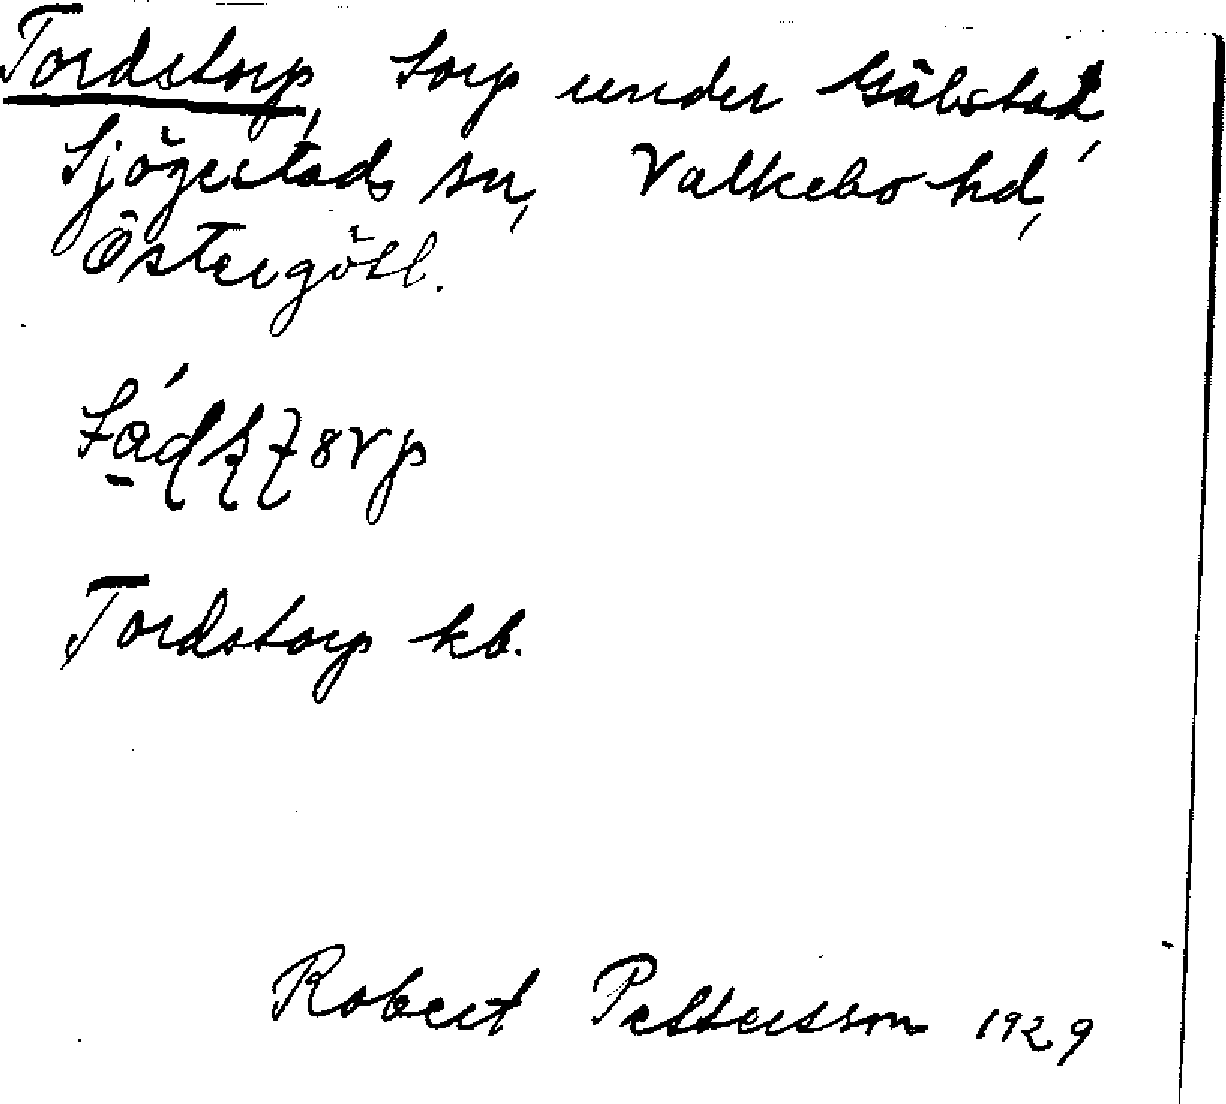 Tordstorp, torp under Gälstad,
Sjögestads sn, Valkebo hd,
Östergötl.
Tordstorp kb.
Robert Pettersson 1929